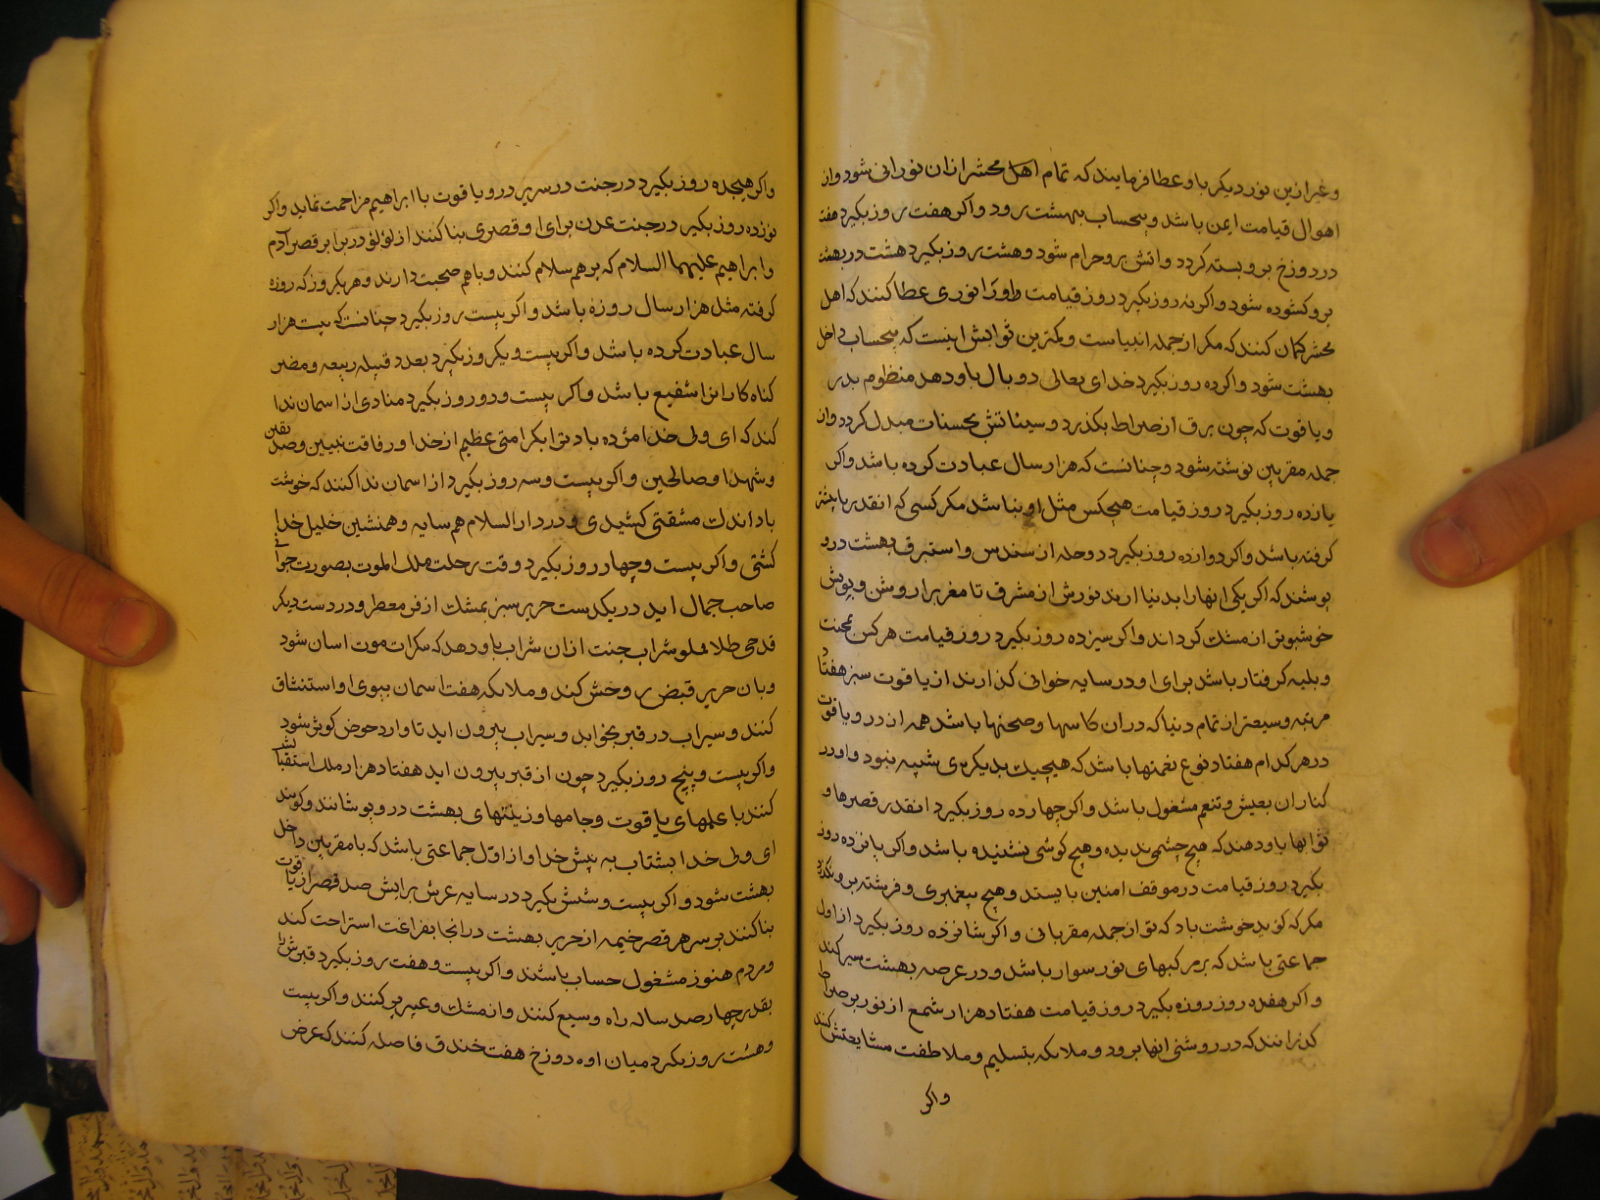 وغیر ازین نور دیکر باو عطا فرمایند که تمام اهل محشر از ان نورانی شود واز
اهوال قیامت ایمن باشد وبیحساب ببهشت رود واکر هفت روز بکیرد هفت
در دوزخ برو بسته کردد واتش بر وحرام شود وهشت روز بکیرد هشت در بهشت
برو کشوده شود واکر نه روز بکیرد روز قیامت واورا نوری عطا کنند که اهل
محشر کمان کنند که مکر از جمله انبیاست وکمترین ثوابش اینست که بیحساب داخل
بهشت شود واکر ده روز بکیرد خدای تعالی دو بال باو دهد منظوم بدر
ویاقوت که چون برق از صراط بکذرد وسیئاتش بحسنات مبدل کردد واز
جمله مقربین نوشته شود وچنانست که هزار سال عبادت کرده باشد واکر
یازده روز بکیرد روز قیامت هیچکس مثل او نباشد مکر کسی که انقدر یا بیشتر
کرفته باشد واکر دوازده روز بکیرد دو حله از سندس واستبرق بهشت درو
پوشند که اکر یکی انها را بدنیا ارند نورش از مشرق تا مغرب را روشن وبویش
خوشبوتر از مشک کرداند واکر سیزده روز بکیرد روز قیامت هر کس بمحنت
وبلیه کرفتار باشد برای او در سایه خوانی کذارند از یاقوت سبز هفتاد
مرتبه وسیعتر از تمام دنیا که دران کاسها وصحنها باشد همه از در ویاقوت
در هر کدام هفتاد نوع نعمتها باشد که هیچیک بدیکری شبیه نبود واو در
کناران بعیش وتنعم مشغول باشد واکر چهارده روز بکیرد انقدر قصرها و
ثوابها باو دهند که هیچ چشمی ندیده وهیچ کوشی نشنیده باشد واکر پانزده روز
بکیرد روز قیامت در موقف امنین بایستد وهیچ پیغمبری وفرشته برو نکذرد
مکر که کوید خوشت باد که تو از جمله مقربانی واکر شانزده روز بکیرد از اول
جماعتی باشد که بر مرکبهای نور سوار باشد ودر عرصه بهشت سیر کند
واکر هفده روز روزه بکیرد روز قیامت هفتاد هزار شمع از نور بر صراط
کذرانند که در روشنی انها برود وملایکه بتسلیم وملاطفت مشایعتش کنند
واکر
واکر هیجده روز بکیرد در جنت در سریر در ویاقوت با ابراهیم مزاحمت نماید واکر
نوزده روز بکیرد در جنت عدن برای او قصری بنا کنند از لؤلؤ در برابر قصر آدم
وابراهیم علیهما السلام که بر هم سلام کنند وباهم صحبت دارند وهر یکروز که روزه
کرفته مثل هزار سال روزه باشد واکر بیست روز بکیرد چنانست که بیست هزار
سال عبادت کرده باشد واکر بیست ویکروز بکیرد بعدد قبیله ربیعه ومضر
کناه کارانرا شفیع باشد واکر بیست ودو روز بکیرد منادی از اسمان ندا
کند که ای ولی خدا مژده باد ترا بکرامتی عظیم از خدا ورفاقت نبیین وصدیقین
وشهدا وصالحین واکر بیست وسه روز بکیرد از اسمان ندا کنند که خوشت
باد اندک مشقتی کشیدی ودر دار السلام هم سایه وهمنشین خلیل خدا
کشتی واکر بیست وچهار روز بکیرد وقت رحلت ملک الموت بصورت جوانی
صاحب جمال اید در یکدست حریر سبز بمشک ازفر معطر ودر دست دیکر
قدحی طلا مملو شراب جنت از ان شراب باو دهد که سکرات موت اسان شود
وبان حریر قبض روحش کند وملایکه هفت اسمان ببوی او استنشاق
کنند وسیراب در قبر بخوابد وسیراب بیرون اید تا وارد حوض کوثر شود
واکر بیست وپنج روز بکیرد چون از قبر بیرون اید هفتاد هزار ملک استقبالش
کنند با علمهای یاقوت وجامها وزینتهای بهشت درو پوشانند وکویند
ای ولی خدا بشتاب به پیش خدا واز اول جماعتی باشد که با مقربین داخل
بهشت شود واکر بیست وشش بکیرد در سایه عرش برایش صد قصر از یاقوت
بنا کنند بر سر هر قصر خیمه از حریر بهشت در انجا بفراغت استراحت کند
ومردم هنوز مشغول حساب باشند واکر بیست وهفت روز بکیرد قبرش را
بقدر چهار صد ساله راه وسیع کنند واز مشک وعبیر پر کنند واکر بیست
وهشت روز بکیرد میان او ودوزخ هفت خندق فاصله کنند که عرض